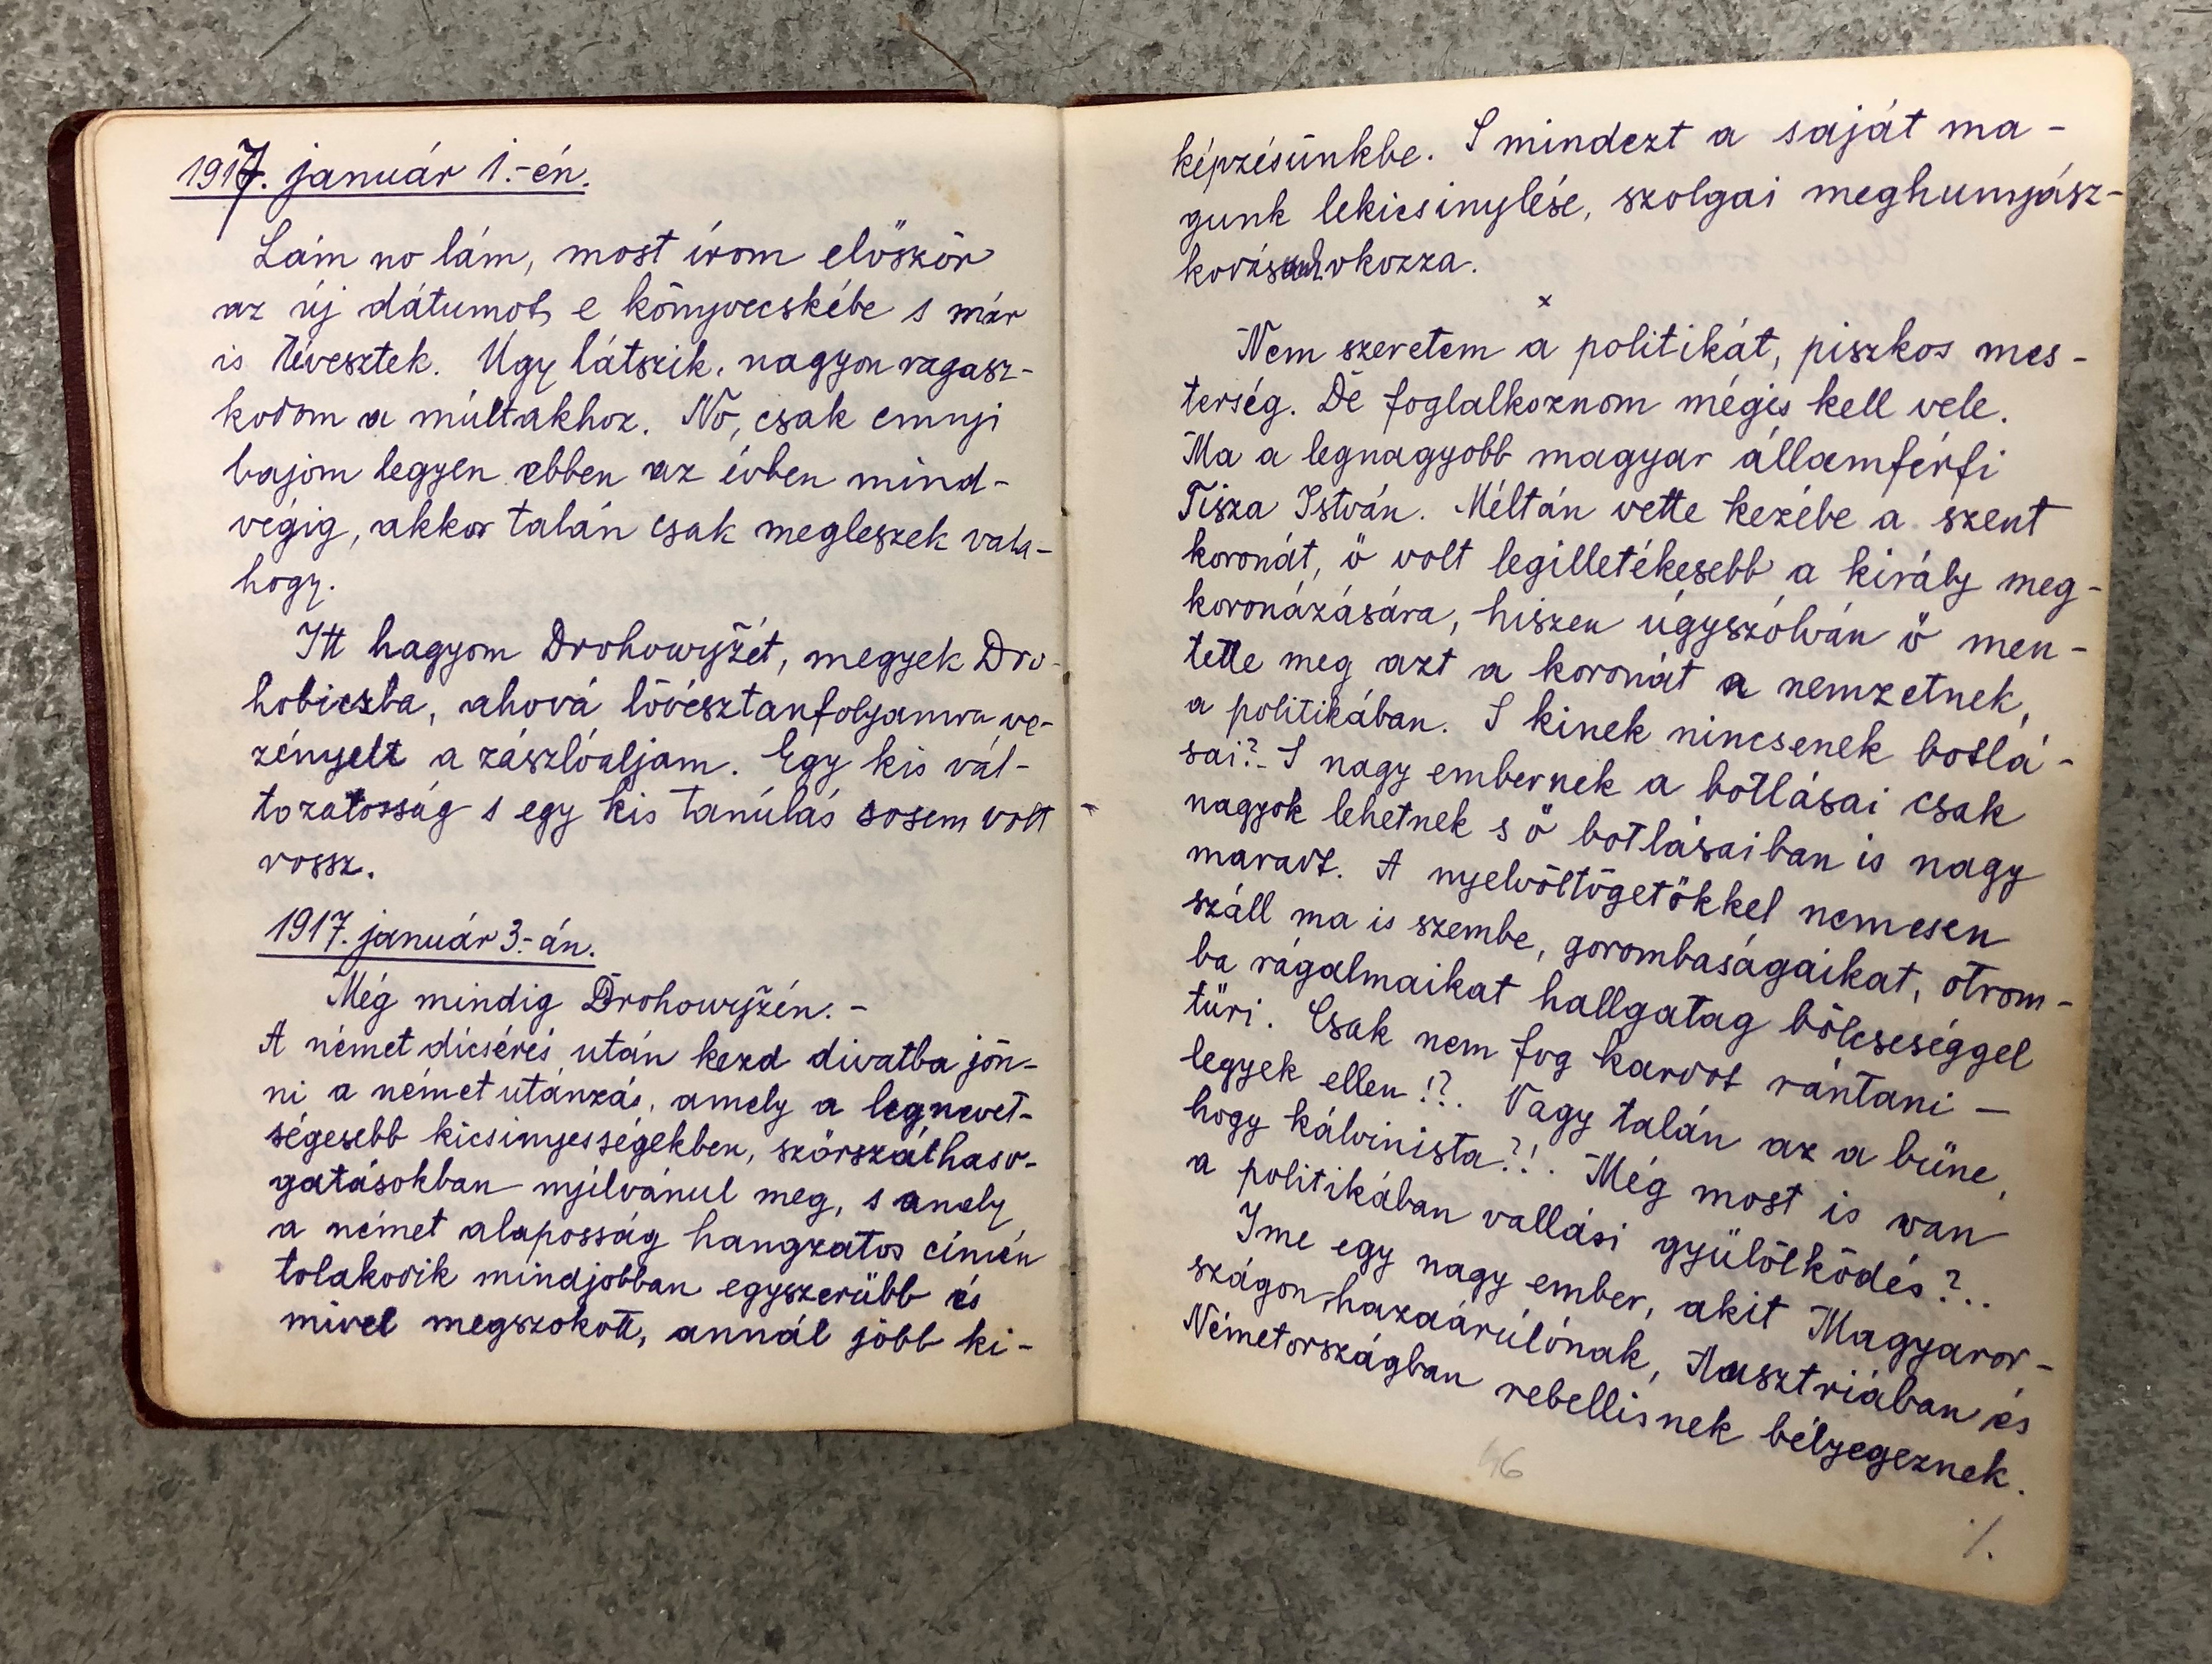 1917. január 1.-én.
Lám no lám, most írom először
az új dátumot e könyvecskébe s már
is tévesztek. Úgy látszik, nagyon ragasz-
kodom a múltakhoz. No, csak ennyi
bajom legyen ebben az évben mind-
végig, akkor talán csak megleszek vala-
hogy.
Itt hagyom Drohowyžét, megyek Dro-
hobiczba, ahová lövésztanfolyamra ve-
zényelt a zászlóaljam. Egy kis vál-
tozatosság s egy kis tanúlás sosem volt
rossz.
1917. január 3.-án.
Még mindig Drohowyžén. -
A német dícsérés után kezd divatba jön-
ni a német utánzás, amely a legnevet-
ségesebb kicsinyességekben, szőrszálhaso-
gatásokban nyilvánul meg, s amely
a német alaposság hangzatos címén
tolakodik mindjobban egyszerűbb és
mivel megszokott, annál jobb ki-
képzésünkbe. S mindezt a saját ma-
gunk lekicsinylése, szolgai meghunyász-
kodás okozza.
x
Nem szeretem a politikát, piszkos mes-
terség. De foglalkoznom mégis kell vele.
Ma a legnagyobb magyar államférfi
Tisza István. Méltán vette kezébe a szent
koronát, ő volt legilletékesebb a király meg-
koronázására, hiszen úgyszólván ő men-
tette meg azt a koronát a nemzetnek,
a politikában. S kinek nincsenek botlá-
sai? - S nagy embernek a botlásai csak
nagyok lehetnek s ő botlásaiban is nagy
maradt. A nyelvöltögetőkkel nemesen
száll ma is szembe, gorombaságaikat, otrom-
ba rágalmaikat hallgatag bölcseséggel
tűri. Csak nem fog kardot rántani —
legyek ellen!?. Vagy talán az a bűne,
hogy kálvinista?!. Még most is van
a politikában vallási gyülölködés?..
Ime egy nagy ember, akit Magyaror-
szágon hazaárúlónak, Ausztriában és
Németországban rebellisnek bélyegeznek.
46
./.